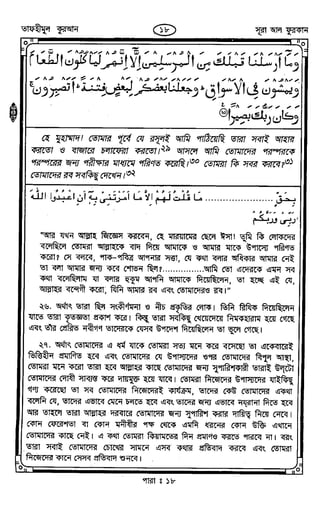 তাফহীমুল কুরআন
১৮
সূরা আল ফুরকান
وما أرسلنا قبلك من المرسلين إلا إنهم ليأكلون الطعام
ويمشون في الأسواق وجعلنا بعضكم لبعض فتنة أتصبرون
وكان ربك بصيرا
হে মুহাম্মাদ! তোমার পূর্বে যে রসূলই আমি পাঠিয়েছি তারা সবাই আহার
করতো ও বাজারে চলাফেরা করতো।২৯ আসলে আমি তোমাদের পরস্পরকে
পরস্পরের জন্য পরীক্ষার মাধ্যমে পরিণত করেছি।৩০ তোমরা কি সবর করবে?৩১
তোমাদের রব সবকিছু দেখেন।৩২
بحق .................... ما قلت لهم إلا ما أمرتني به أن اعبدوا الله
ربي وربكم
"আর যখন আল্লাহ জিজ্ঞেস করবেন, হে মারয়ামের ছেলে ঈসা! তুমি কি লোকদের
বলেছিলে তোমরা আল্লাহকে বাদ দিয়ে আমাকে ও আমার মাকে উপাস্যে পরিণত
করো? সে বলবে, পাক-পবিত্র আপনার সত্তা, যে কথা বলার অধিকার আমার নেই
তা বলা আমার জন্য কবে শোভন ছিল?................আমি তো এদেরকে এমন সব
কথা বলেছিলাম যা বলার হুকুম আপনি আমাকে দিয়েছিলেন, তা হচ্ছে এই যে,
আল্লাহর বন্দেগী করো, যিনি আমার রব এবং তোমাদেরও রব।"
২৬. অর্থাৎ তারা ছিল সংকীর্ণমনা ও নীচ প্রকৃতির লোক। তিনি রিযিক দিয়েছিলেন
যাতে তারা কৃতজ্ঞতা প্রকাশ করে। কিন্তু তারা সবকিছু খেয়েদেয়ে নিমকহারাম হয়ে গেছে
এবং তাঁর প্রেরিত নবীগণ তাদেরকে যেসব উপদেশ দিয়েছিলেন তা ভুলে গেছে।
২৭. অর্থাৎ তোমাদের এ ধর্ম যাকে তোমরা সত্য মনে করে বসেছো তা একেবারেই
ভিত্তিহীন প্রমাণিত হবে এবং তোমাদের যে উপাস্যদের ওপর তোমাদের বিপুল আস্থা,
তোমরা মনে করো তারা হবে আল্লাহর কাছে তোমাদের জন্য সুপারিশকারী তারাই উল্টো
তোমাদের দোষী সাব্যস্ত করে দায়মুক্ত হয়ে যাবে। তোমরা নিজেদের উপাস্যদের যাকিছু
গণ্য করেছো তা সব তোমাদের নিজেদেরই কার্যক্রম, তাদের কেউ তোমাদের একথা
বলেনি যে, তাদের এভাবে মেনে চলতে হবে এবং তাদের জন্য এভাবে নযরানা দিতে হবে
আর তাহলে তারা আল্লাহর দরবারে তোমাদের জন্য সুপারিশ করার দায়িত্ব নিয়ে নেবে।
কোন ফেরেশতা বা কোন মনীষীর পক্ষ থেকে এমনি ধরনের কোন উক্তি এখানে
তোমাদের কাছে নেই। এ কথা তোমরা কিয়ামতের দিন প্রমাণও করতে পারবে না। বরং
তারা সবাই তোমাদের চোখের সামনে এসব কথার প্রতিবাদ করবে এবং তোমরা
নিজেদের কানে সেসব প্রতিবাদ শুনবে।
পারা : ১৮